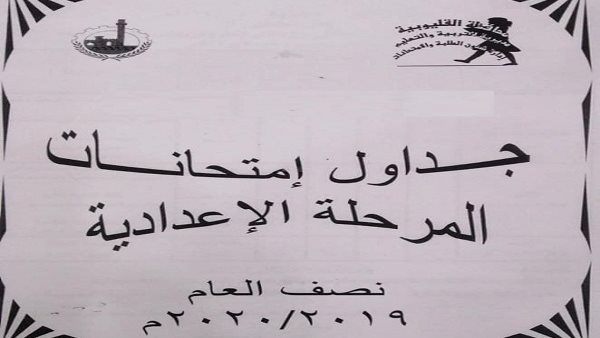 محافظة القليوبية
مديرية التربية والتعليم
إدارة شئون الطلبة والامتحانات
جداول إمتحانات
المرحلة الإعدادية
نصف العام
٢٠٢٠/٢٠١٩م